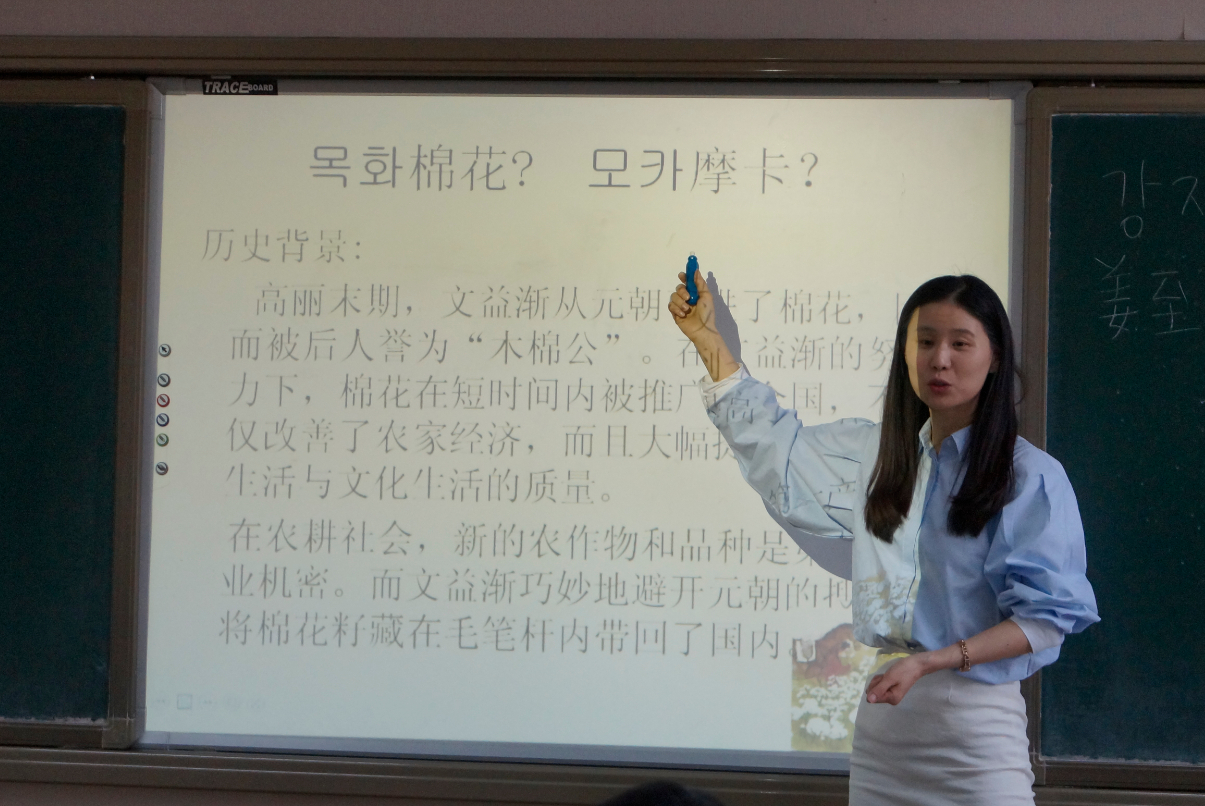 TRACEBOARD
목화棉花? 모카摩卡?
历史背景:
高丽末期，文益渐从元朝 进了棉花，
而被后人誉为“木棉公”。在文益渐的努
力下，棉花在短时间内被推广 高 国，不
仅改善了农家经济，而且大幅
生活与文化生活的质量。 产
在农耕社会，新的农作物和品种是
业机密。而文益渐巧妙地避开元朝的
将棉花籽藏在毛笔杆内带回了国内。
강지
姜至